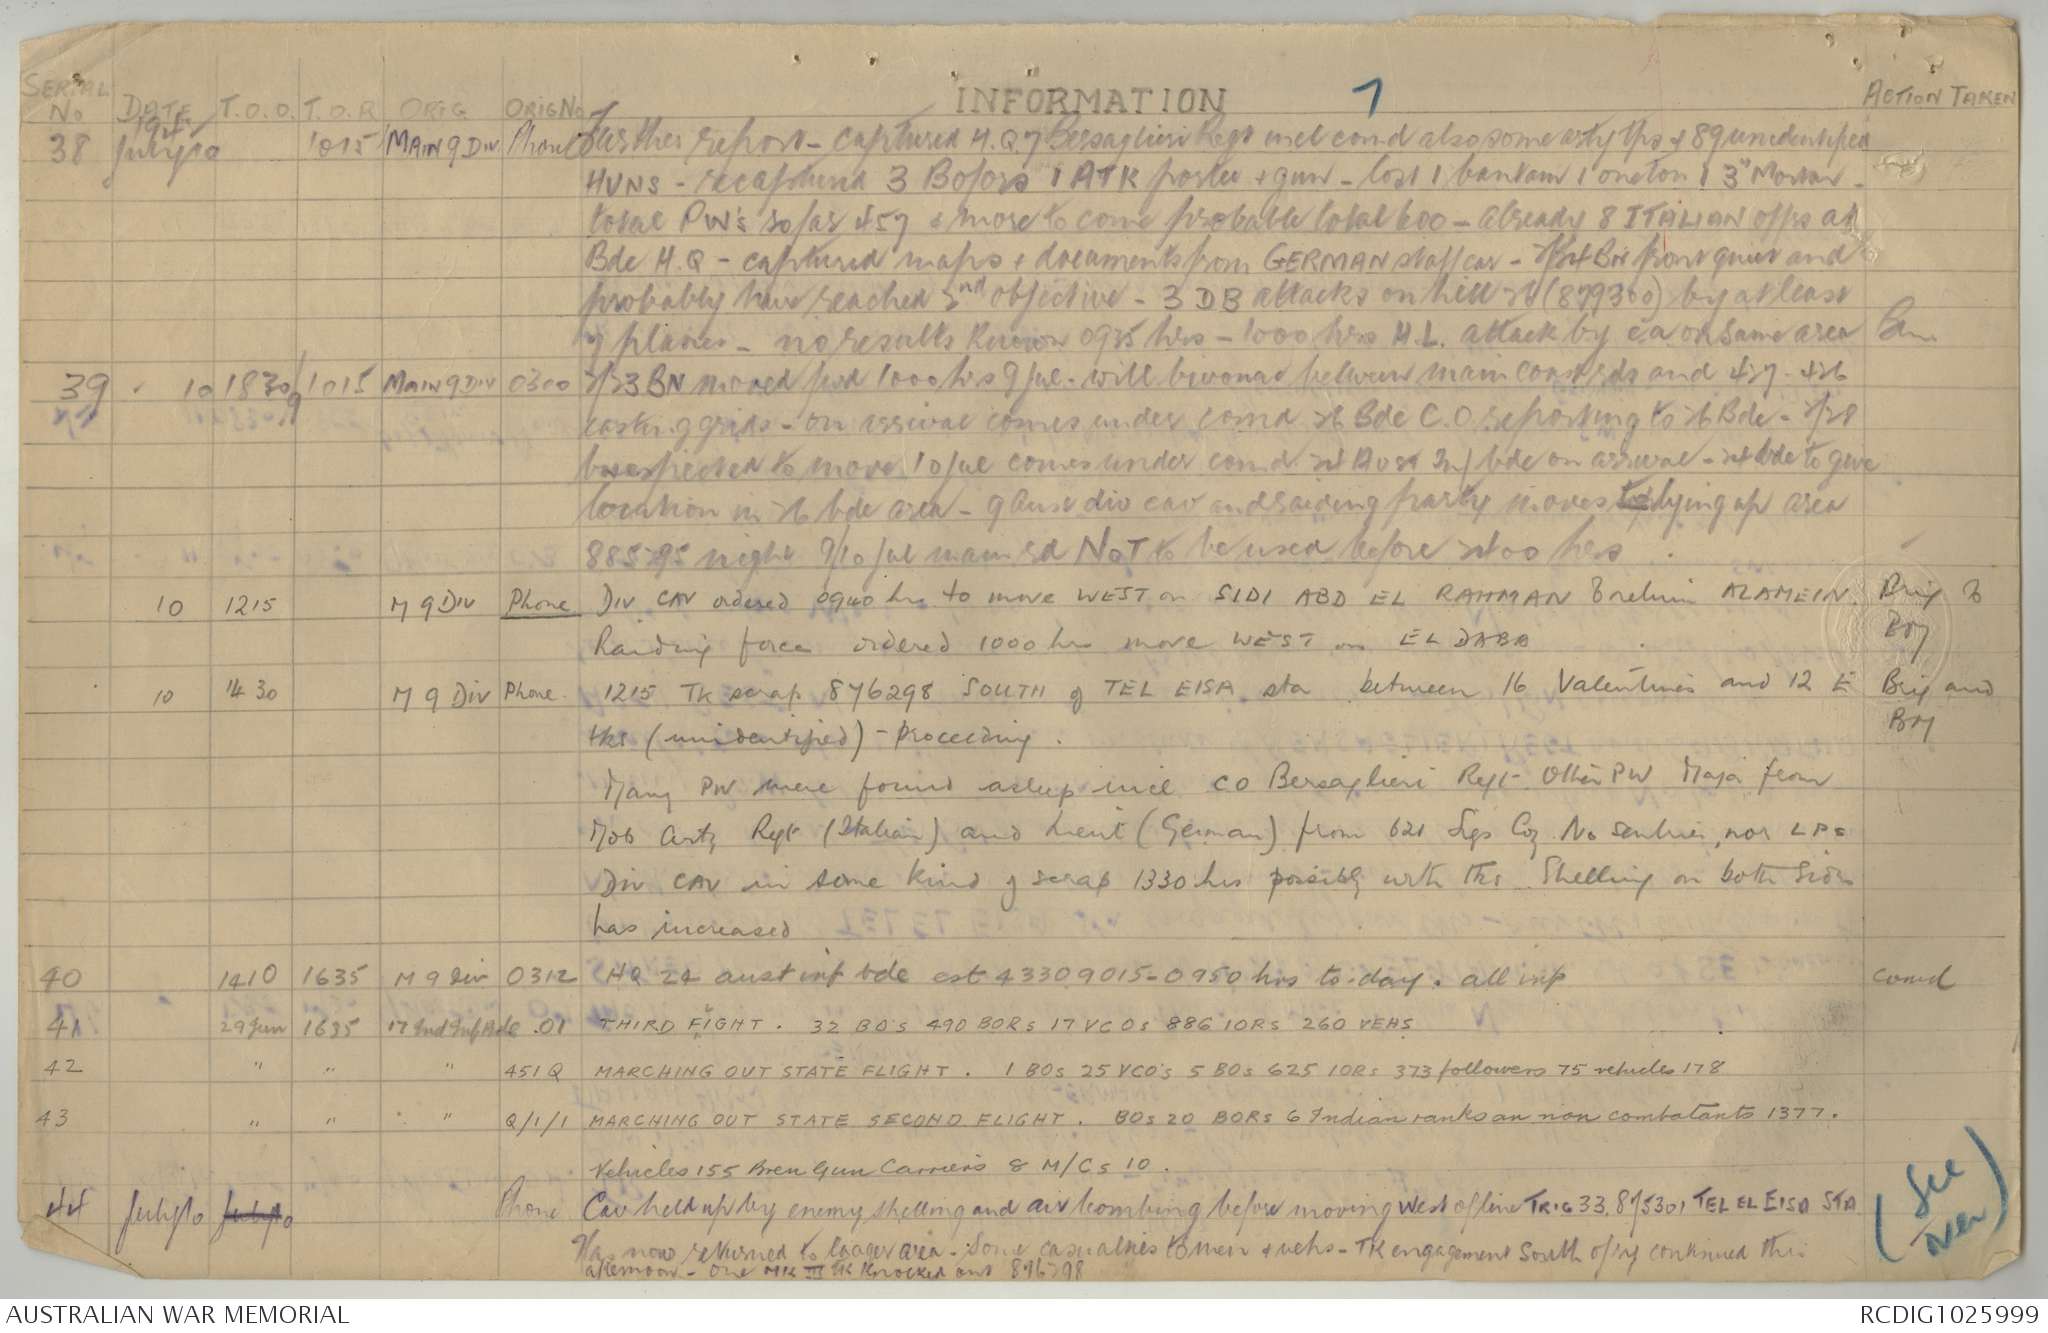 SERIAL No DATE T.O.O. T.O.R ORIG ORIG No INFORMATION 7 ACTION TAKEN
1942
38 July 10 1015 MAIN 9 DIV Phone Further report - captured H.Q. 7 Bersaglieri Regt incl comd also some arty tps & 89 unidentified
HUNS - recaptured 3 Bofors 1 ATK portee & gun - lost 1 bantam 1 one ton 1 3" Mortar -
total PW's so far 457 & more to come probable total 600 - already 8 ITALIAN offrs at
Bde H.Q - captured maps & documents from GERMAN staff car - 2/24 BN front quiet and
probably have reached 2nd objective - 3 DB attacks on hill 26 (879300) by at least
planes - no results known 0935 hrs - 1000 hrs H.L. attack by ea on same area
39 " 10 1830/9 1015 MAIN 9 DIV 0300 2/23 BN moved fwd 1000 hrs 9 Jul. will bivouac between main coast rds and 427 - 426
easting grids - on arrival comes under comd 26 Bde C.O. reporting to 26 Bde - 2/28
bn expected to move 10 Jul comes under comd 24 Aust Inf bde on arrival - 24 bde to give
location in 26 bde area - 9 Aust div cav and raiding party moves to lying up area
night 9/10 Jul main rd NOT to be used before 2400 hrs
10 1215 M 9 DIV Phone DIV CAV ordered 0940 hrs to move WEST on SIDI ABD EL RAHMAN ALAMEIN. Brig &
Raiding force ordered 1000 hrs move WEST on EL DABA BM
10 1430 M 9 Div Phone. 1215 TK scrap 876298 SOUTH of TEL EISA sta between 16 Valentines and 12 E Brig and
tks (unidentified) - proceeding. BM
Many PW were found asleep incl CO Bersaglieri Regt. Other PW Major from
Mob Arty Regt (Italian) and Lieut (German) from 621 Sigs Coy. No sentries, nor LPs
DIV CAV in some kind of scrap 1330 hrs possibly with tks. Shelling on both sides
has increased
40 1410 1635 M 9 Div 0312 HQ 24 aust inf bde est 43309015 - 0950 hrs to-day. all inf comd
41 29 Jun 1635 17 Ind Inf Bde .01 THIRD FIGHT. 32 BO's 490 BORs 17 VCOs 886 IORs 260 VEHS
42 " " " 451 Q MARCHING OUT STATE FLIGHT. 1 BOs 25 VCO's 5 BOs 625 IORs 373 followers 75 vehicles 178
43 " " " Q/1/1 MARCHING OUT STATE SECOND FLIGHT. BOs 20 BORs 6 Indian ranks an non combatants 1377.
Vehicles 155 Bren Gun Carriers 8 M/Cs 10.
44 July 10 July 10 Phone Cav held up by enemy shelling and air bombing before moving West of line TRIG 33, 875301 TEL EL EISA STA
Has now returned to laager area - Some casualties to men & vehs - TK engagement South of rly continued this
afternoon - one MK III TK knocked out 876298
(See over)
AUSTRALIAN WAR MEMORIAL RCDIG1025999